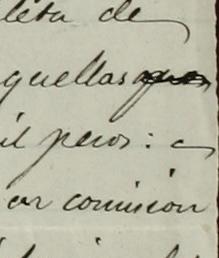 leta de
quellas
il pesos: a
or comision